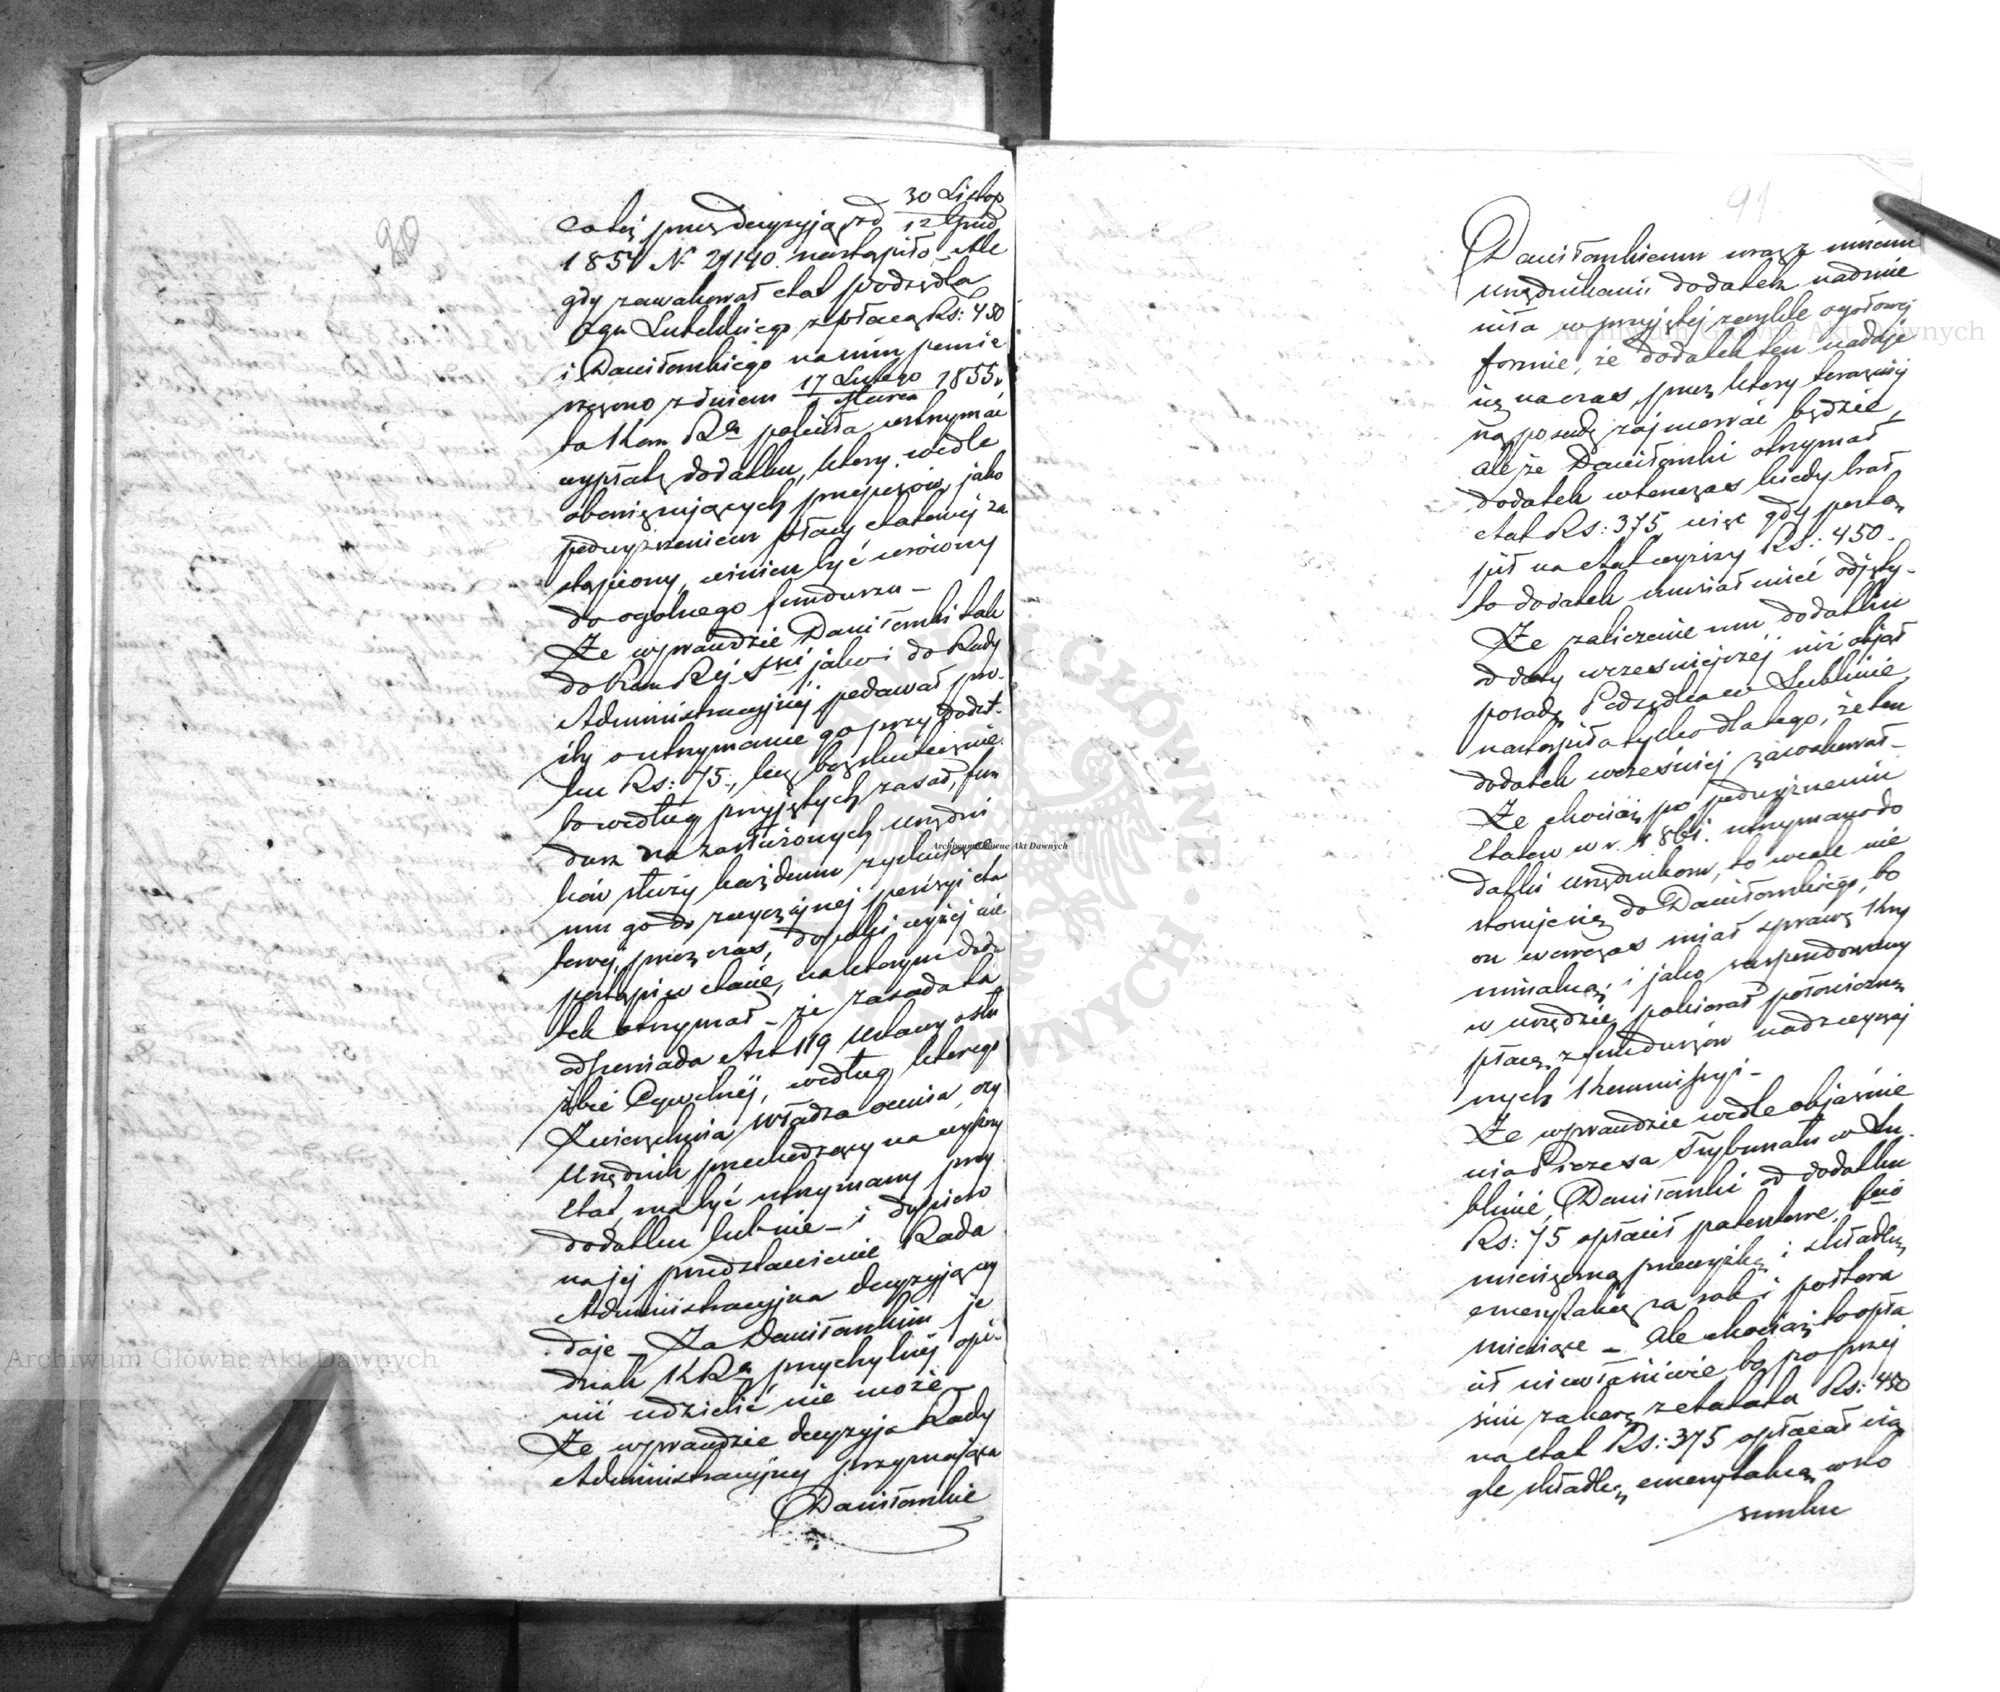 90
co też przez decyzyją z d 30 Listop
12 Grud
1854 N. 21140. nastąpiło. Ale
gdy zawakował etat podsędka
Ogn Lubelskiego z płacą Rs: 450
i Daniłowskiego na nim pomie
szczono z dniem 17 Lutego 1855 r
1 Marca
to Kom Ra poleciła wstrzymać
wypłatę dodatku, który wedle
obowiązujących przepisów, jako
podwyższeniem płacy etatowej za
stąpiony, winien być wrócony
do ogólnego funduszu –
Że wprawdzie Daniłowski tak
do Kom Rz. Sści jako i do Rady
Administracyjnej podawał pro-
śby o utrzymanie go przy dodat-
ku Rs: 75., lecz bezskutecznie.
bo według przyjętych zasad, fun
dusz na zasłużonych urzędni
ków służy każdemu zyskujące
mu go do zwyczajnej pensyi eta
towej, przez czas, dopóki wyżej nie
postąpi w etacie, na którym doda
tek otrzymał – że zasada ta
odpowiada Art 119 Ustawy o słu
żbie Cywilnej, według którego
Zwierzchnia Władza ocenia, czy
Urzędnik przechodzący na wyższy
Etat, ma być utrzymany przy
dodatku lub nie – i dopiero
na jej przedstawienie Rada
Administracyjna decyzyją wy
daje – Za Daniłowskim je
dnak K Ra przychylnej opi-
nii udzielić nie może –
Że wprawdzie decyzyja Rady
Administracyjnej przyznająca
Daniłowskie
91
Daniłowskiemu wraz z innemi
urzędnikami dodatek nadmie
niła w przyjętej zwykle ogółowej
formie, że dodatek ten nadaje
się na czas, przez który teraźniej
szą posadę zajmować będzie,
ale że Daniłowski otrzymał
dodatek wtenczas kiedy brał
etat Rs: 375, więc gdy postą
pił na etat wyższy Rs: 450.
to dodatek musiał mieć odjęty.
Że zaliczenie mu dodatku
od daty wcześniejszej niż objął
posadę Podsędka w Lublinie,
nastąpiła tylko dla tego, że ten
dodatek wcześniej zawakował –
Że chociaż po podwyższeniu
Etatów w r. 1861. utrzymano do
datki urzędnikom, to wcale nie
stosuje się do Daniłowskiego, bo
on wówczas miał sprawę Kry
minalną i jako suspendowany
w urzędzie, pobierał połowiczną
płacę z funduszów nadzwyczaj
nych Kommissyi –
Że wprawdzie wedle objaśnie
nia Prezesa Trybunału w Lu
blinie, Daniłowski od dodatku
Rs: 75 opłacił patentowe,
miesięczną przewyżkę i składkę
emerytalną za rok i półtora
miesiąca – Ale chociaż to opła
cił niewłaściwie, bo po przej
ściu za karę z etatatu Rs: 450
na etat Rs: 375 opłacał cią
gle składkę emerytalną w sto
sunku
Archiwum Główne Akt Dawnych
Archiwum Główne Akt Dawnych
Archiwum Główne Akt Dawnych